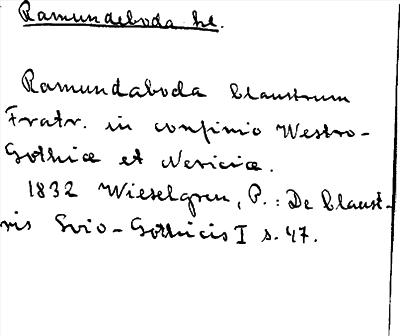 Ramundeboda kl.
Ramundaboda Claustrum
Fratr. in confinio Westro-
Gothiæ et Nericiæ.
1832 Wieselgren, P.: De Claust-
ris Svio-Gothicis I s. 47.